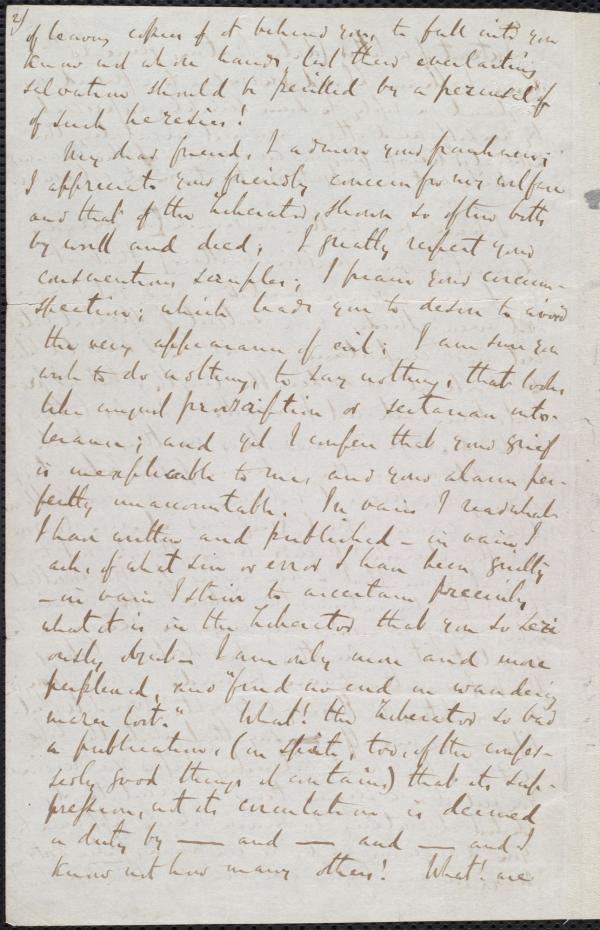 2)
of leaving copies of it behind you, to fall into you
know not whose hands, lest their everlasting
salvation should be periled by a perusal of
of such heresies!
My dear friend, I admire your frankness;
I appreciate your friendly concern for my welfare
and that of the Liberator, shown so often both
by word and deed; I greatly respect your
conscientious scruples; I praise your circum-
spection; which leads you to desire to avoid
the very appearance of evil; I am sure you
wish to do nothing, to say nothing, that looks
like unjust proscription or sectarian into-
lerance; and yet I confess that your grief
is inexplicable to me, and your alarm per-
fectly unaccountable. In vain I read what
I have written and published – in vain I
ask, of what sin or error I have been guilty
– in vain I strive to ascertain precisely
what it is in the Liberator that you so seri
ously dread – I am only more and more
perplexed, and "find no end in wandering
mazes lost." What! the Liberator so bad
a publication, (in spite, too, of the confes-
sedly good things it contains) that its sup-
pression, not its circulation, is deemed
a duty by — and — and — and I
know not how many others! What! are